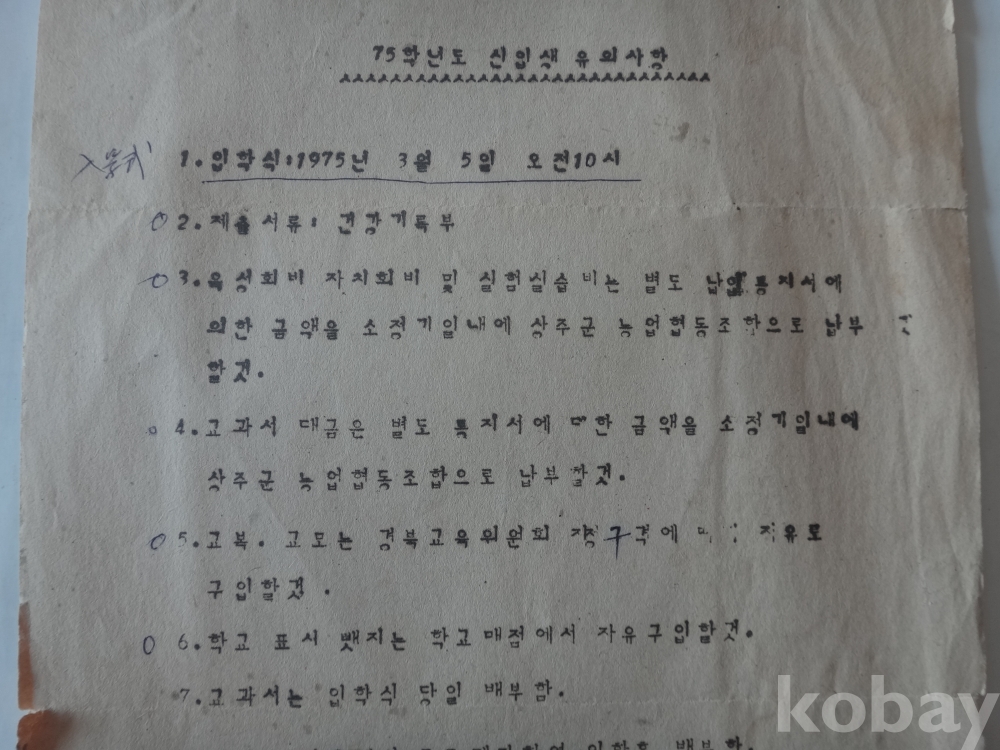 75학년도 신입생 유의사항
1. 입학식:1975년 3월 5일 오전10시
2. 제출서류: 건강기록부
3. 육성회비 자치회비 및 실험실습비는 별도 납입통지서에
의한 금액을 소정기일내에 상주군 농업협동조합으로 납부
할것.
4. 교과서 대금은 별도 통지서에 의한 금액을 소정기일내에
상주군 농업협동조합으로 납부할것.
5. 교복. 교모는 경북교육위원회 자유로
구입할것.
6. 학교 표시 뺏지는 학교매점에서 자유구입할것.
7. 교과서는 입학식 당일 배부함.
입학후 배부함.
kobay